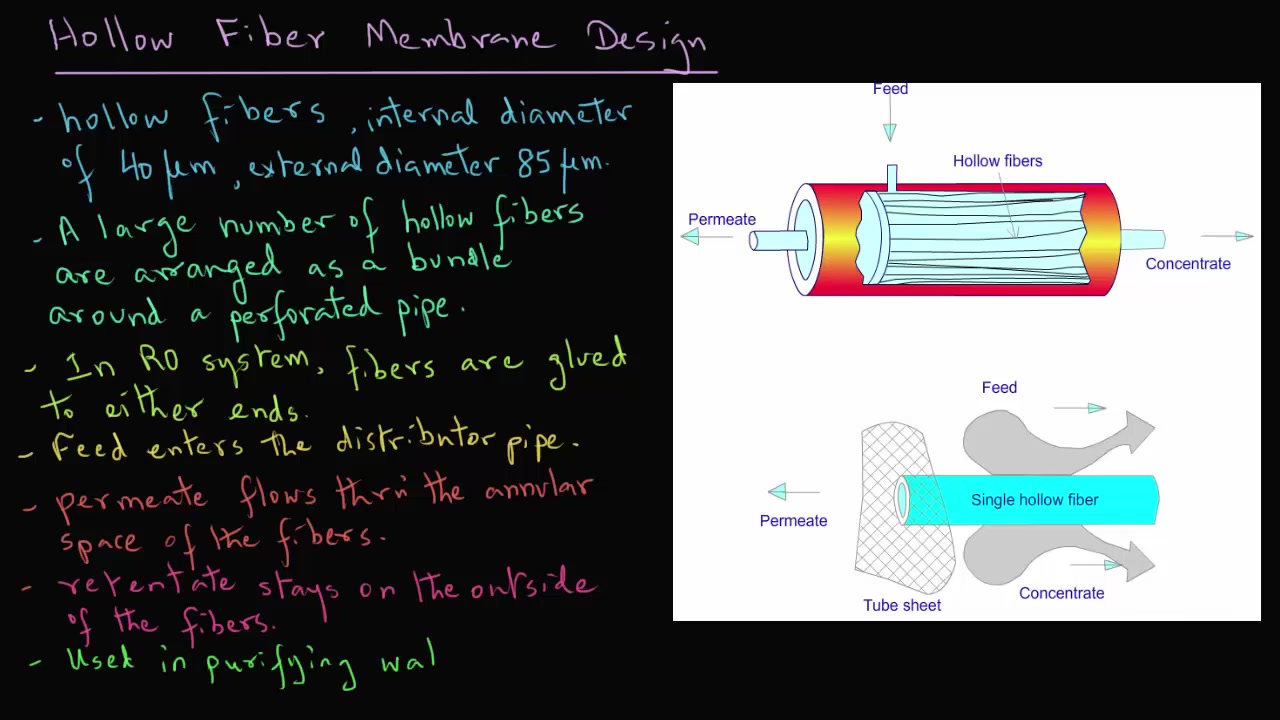 Hollow Fiber Membrane Design
- hollow fibers, internal diameter
of 40 μm, external diameter 85 μm.
- A large number of hollow fibers
are arranged as a bundle
around a perforated pipe.
- In RO system, fibers are glued
to either ends.
- Feed enters the distributor pipe.
- permeate flows thru the annular
space of the fibers.
- retentate stays on the outside
of the fibers.
- Used in purifying wat
Feed
Hollow fibers
Permeate
Concentrate
Feed
Single hollow fiber
Permeate
Concentrate
Tube sheet